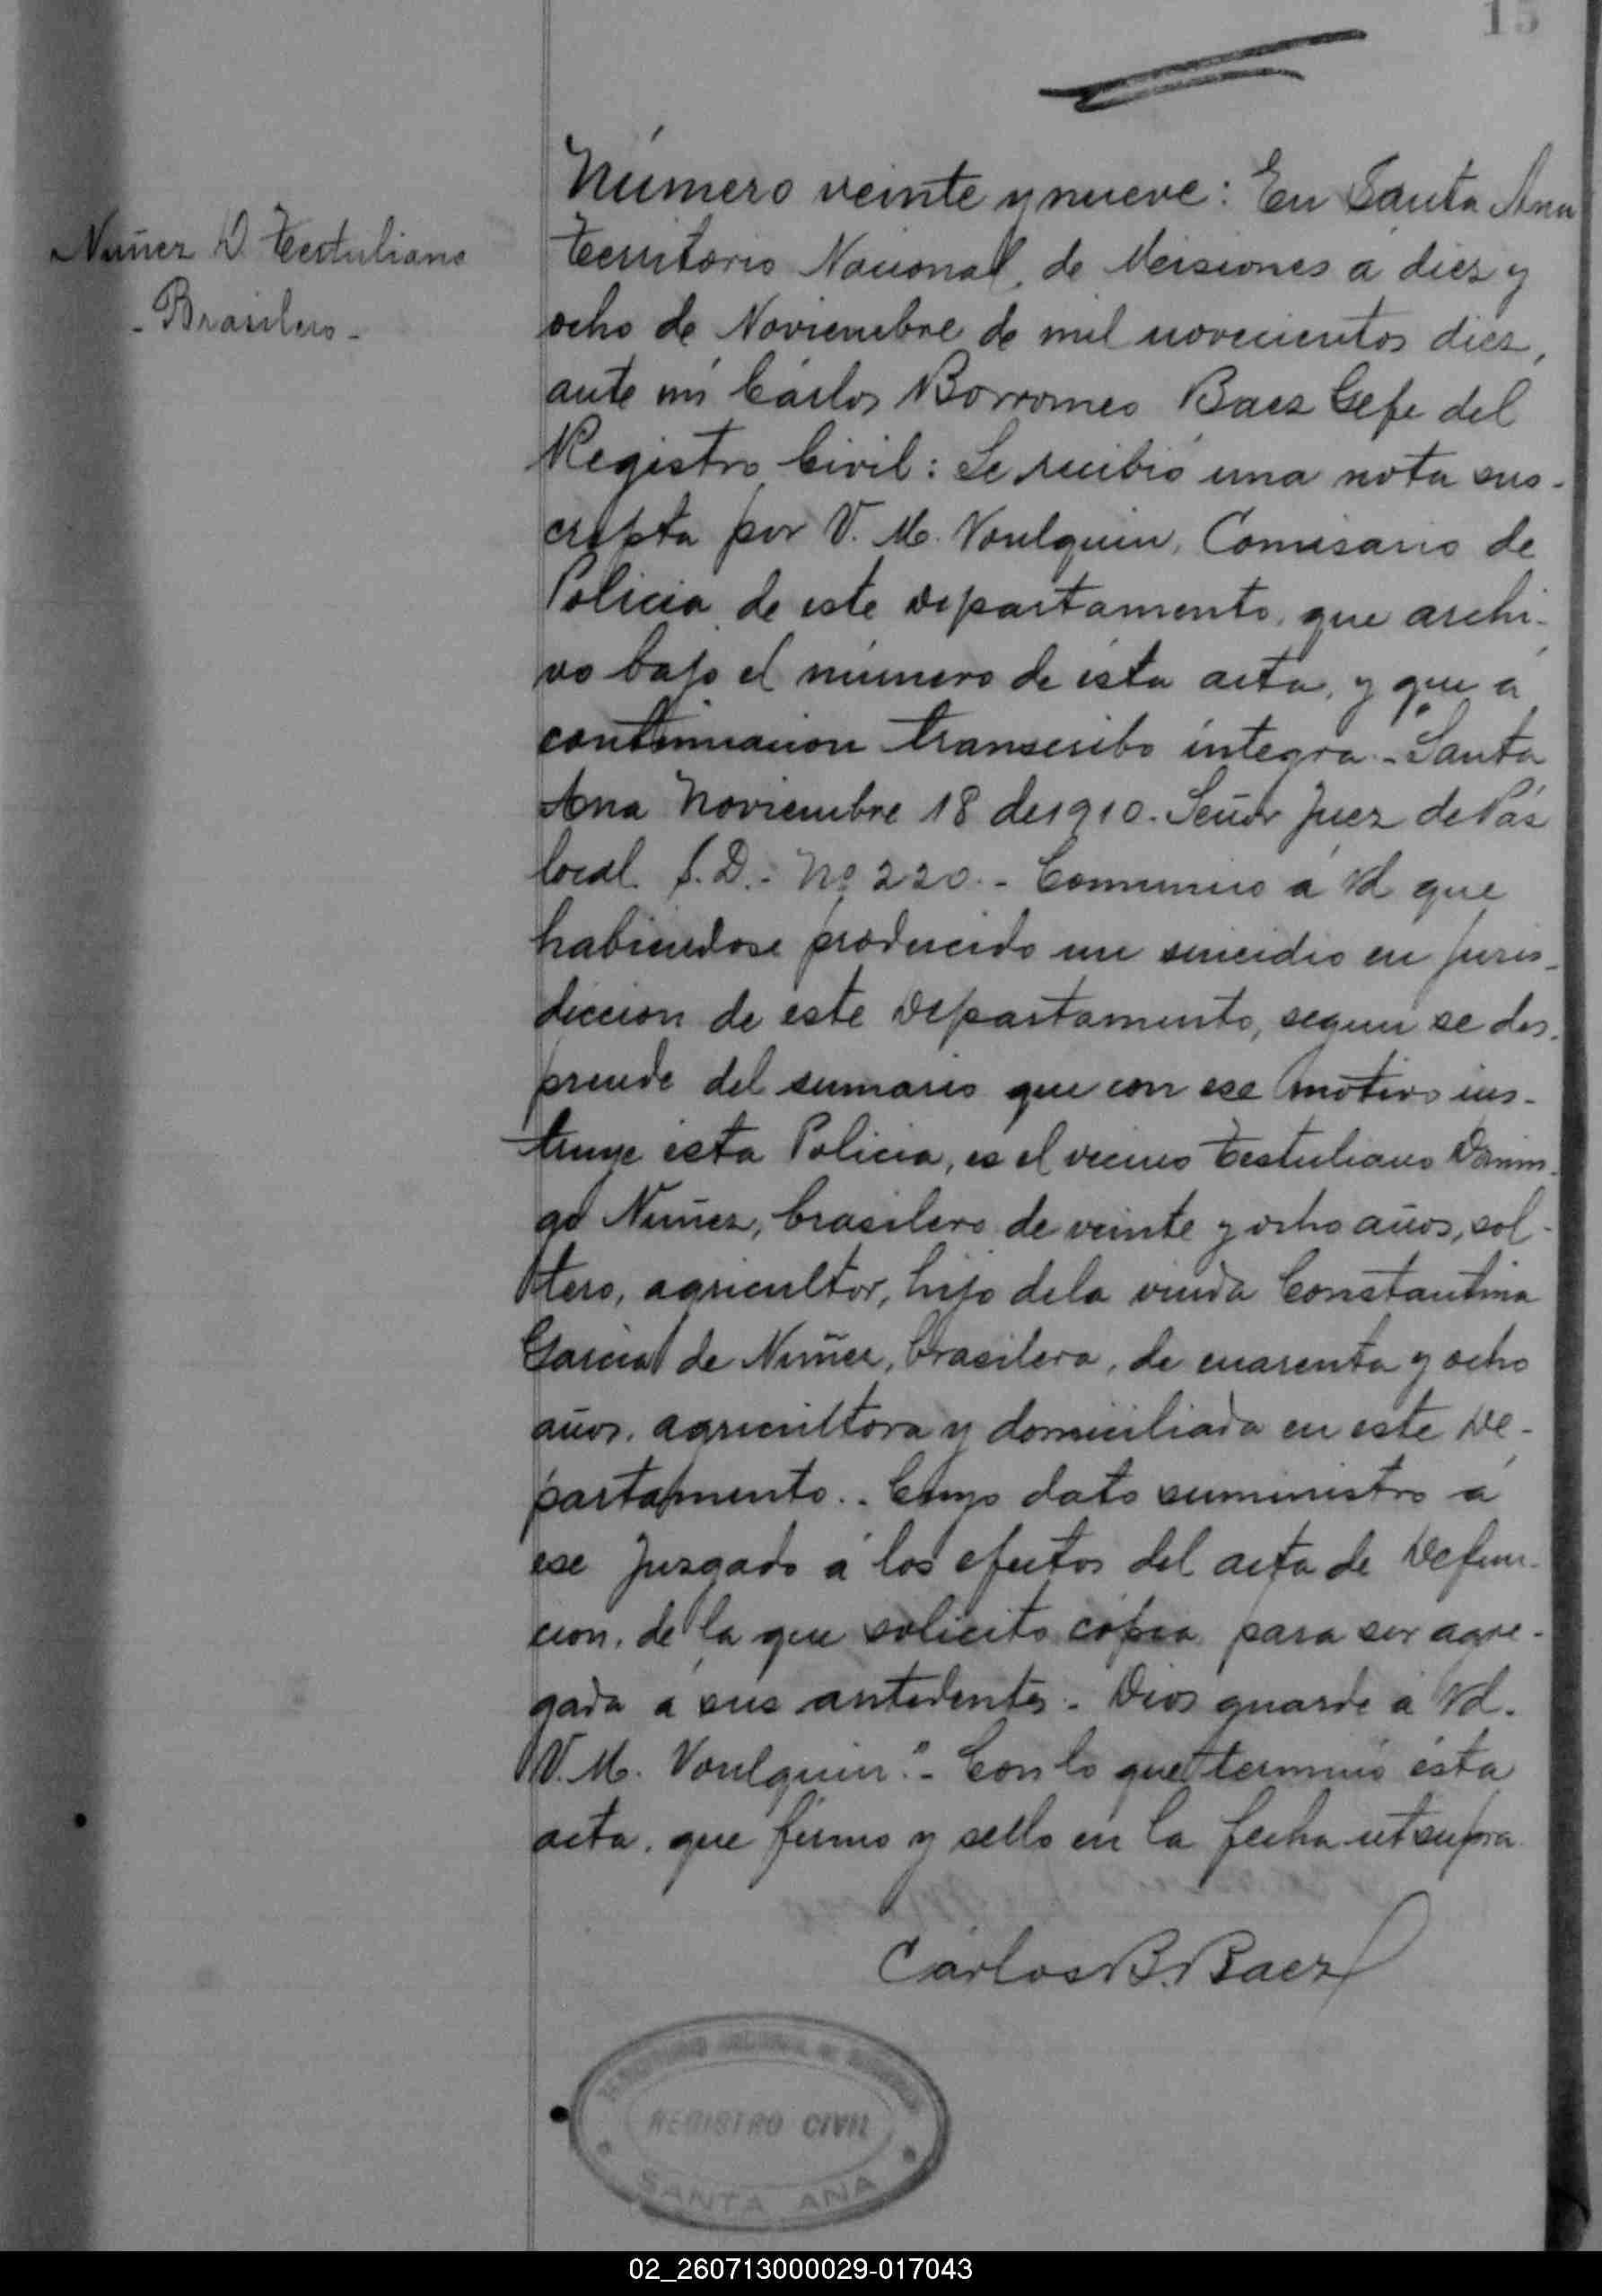 15
Nuñez D. Tertuliano
- Brasilero -
Número veinte y nueve: En Santa Ana
Territorio Nacional, de Misiones á diez y
ocho de Noviembre de mil novecientos diez,
ante mí Cárlos Borromeo Baez Gefe del
Registro Civil: Se recibió una nota sus-
cripta por V. M. Voulquin, Comisario de
Policia de este Departamento, que archi-
vo bajo el número de ésta acta, y que á
continuacion transcribo íntegra.- "Santa
Ana Noviembre 18 de 1910. Señor Juez de Páz
local. S. D.- Nº 220.- Comunico á Vd que
habiendose producido un suicidio en juris-
diccion de este Departamento, segun se des-
prende del sumario que con ese motivo ins-
truye ésta Policia, es el vecino Tertuliano Domin-
go Nuñez, brasilero de veinte y ocho años, sol-
tero, agricultor, hijo de la viuda Constantina
Garcia de Nuñez, brasilera, de cuarenta y ocho
años, agricultora y domiciliada en este De-
partamento.- Cuyo dato suministro á
ese Juzgado á los efectos del acta de Defun-
cion, de la que solicito cópia para ser agre-
gada á sus antedentes.- Dios guarde á Vd.
V. M. Voulquin".- Con lo que terminó ésta
acta, que firmo y sello en la fecha ut supra
Cárlos B. Baez
REGISTRO CIVIL
SANTA ANA
02_260713000029-017043